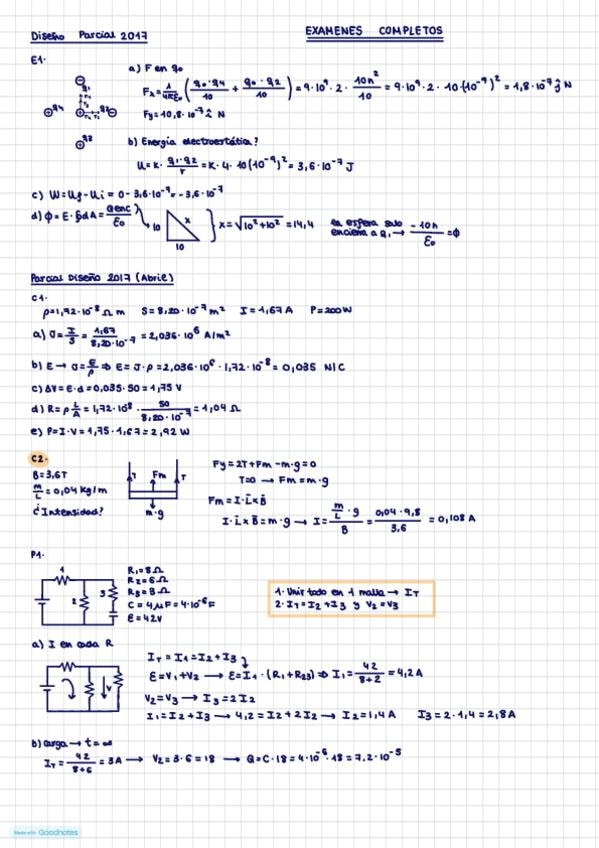 EXAMENES COMPLETOS
Diseño Parcial 2017
E1.
a) F en q₀
Fx = 1/4πε₀ (q₀·q4/10 + q₀·q2/10) = 9·10⁹·2·10n²/10 = 9·10⁹·2·10(10⁻⁹)² = 1,8·10⁻⁷ ĵ N
Fy = 10,8·10⁻⁷ ĵ N
q1
q4
q2
q3
b) Energía electrostática?
U = K·q1·q2/r = K·4·10(10⁻⁹)² = 3,6·10⁻⁷ J
c) W = Uf - Ui = 0 - 3,6·10⁻⁷ = -3,6·10⁻⁷
d) ϕ = E·∮dA = Qenc/ε₀
10
x
10
x = √10²+10² = 14,4
la esfera solo
encierra a q1 → -10n/ε₀ = ϕ
Parcial Diseño 2017 (Abril)
C1.
ρ = 1,72·10⁻⁸ Ω m S = 8,20·10⁻⁷ m² I = 1,67 A P = 200 W
a) J = I/S = 1,67/8,20·10⁻⁷ = 2,036·10⁶ A/m²
b) E → J = E/ρ ⇒ E = J·ρ = 2,036·10⁶·1,72·10⁻⁸ = 0,035 N/C
c) ΔV = E·d = 0,035·50 = 1,75 V
d) R = ρ L/A = 1,72·10⁸·50/8,20·10⁻⁷ = 1,04 Ω
e) P = I·V = 1,75·1,67 = 2,92 W
C2.
B = 3,6 T
m/L = 0,04 kg/m
¿Intensidad?
T Fm T
m·g
Fy = 2T + Fm - m·g = 0
T = 0 → Fm = m·g
Fm = I·L×B
I·L×B = m·g → I = m/L·g/B = 0,04·9,8/3,6 = 0,108 A
P1.
1
2
3
R1 = 8 Ω
R2 = 6 Ω
R3 = 3 Ω
C = 4 μF = 4·10⁻⁶ F
ε = 42 V
1. Unir todo en 1 malla → IT
2. IT = I2 + I3 y V2 = V3
a) I en cada R
IT = I1 = I2 + I3
ε = V1 + V2 → ε = I1·(R1 + R23) ⇒ I1 = 42/8+2 = 4,2 A
V2 = V3 → I3 = 2I2
I1 = I2 + I3 → 4,2 = I2 + 2I2 → I2 = 1,4 A I3 = 2·1,4 = 2,8 A
b) Carga → t = ∞
IT = 42/8+6 = 3A → V2 = 3·6 = 18 → Q = C·18 = 4·10⁻⁶·18 = 7,2·10⁻⁵
Made with Goodnotes